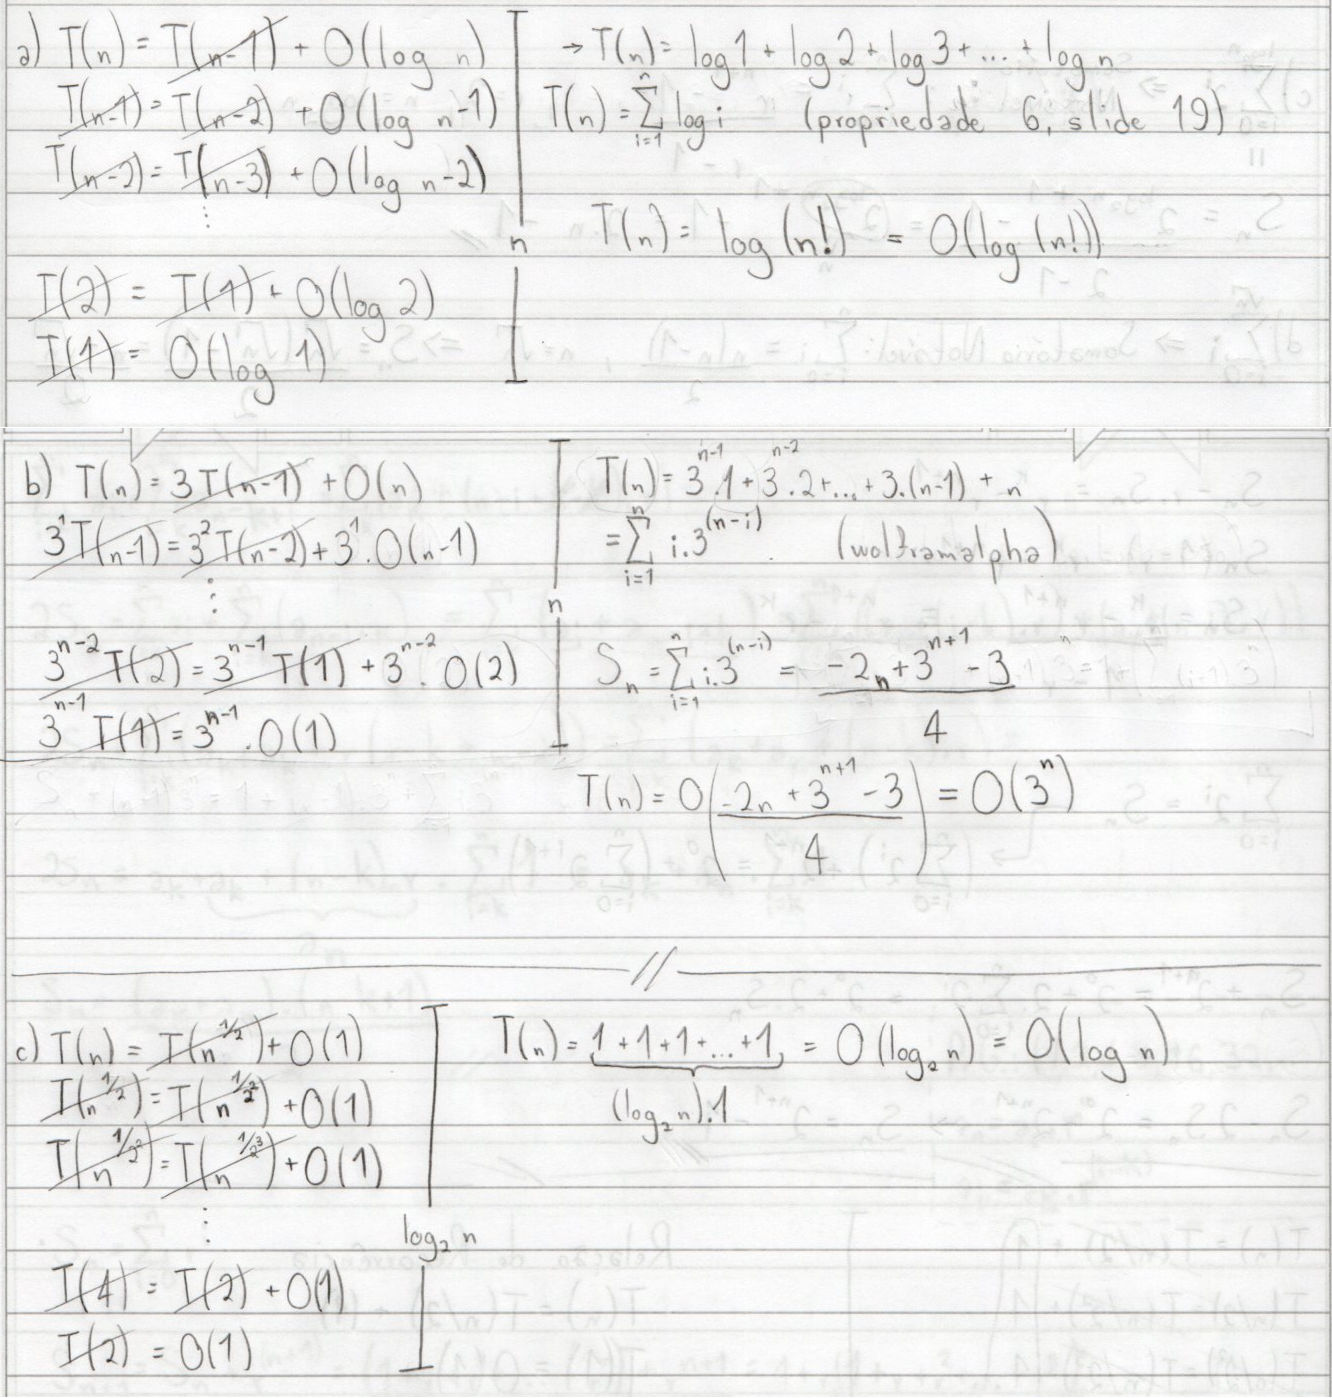 a) T(n) = T(n-1) + O(log n)
T(n-1) = T(n-2) + O(log n-1)
T(n-2) = T(n-3) + O(log n-2)
⋮
T(2) = T(1) + O(log 2)
T(1) = O(log 1)
n
→ T(n) = log 1 + log 2 + log 3 + ... + log n
T(n) = ∑_{i=1}^{n} log i (propriedade 6, slide 19)
T(n) = log (n!) = O(log (n!))
b) T(n) = 3T(n-1) + O(n)
3^1 T(n-1) = 3^2 T(n-2) + 3^1 . O(n-1)
⋮
3^{n-2} T(2) = 3^{n-1} T(1) + 3^{n-2} . O(2)
3^{n-1} T(1) = 3^{n-1} . O(1)
n
T(n) = 3^{n-1} . 1 + 3^{n-2} . 2 + ... + 3 . (n-1) + n
= ∑_{i=1}^{n} i . 3^{(n-i)} (wolframalpha)
S_n = ∑_{i=1}^{n} i . 3^{(n-i)} = (-2n + 3^{n+1} - 3) / 4
T(n) = O((-2n + 3^{n+1} - 3) / 4) = O(3^n)
//
c) T(n) = T(n^{1/2}) + O(1)
T(n^{1/2}) = T(n^{1/2^2}) + O(1)
T(n^{1/2^2}) = T(n^{1/2^3}) + O(1)
⋮
T(4) = T(2) + O(1)
T(2) = O(1)
log_2 n
T(n) = 1 + 1 + 1 + ... + 1 = O(log_2 n) = O(log n)
(log_2 n) . 1